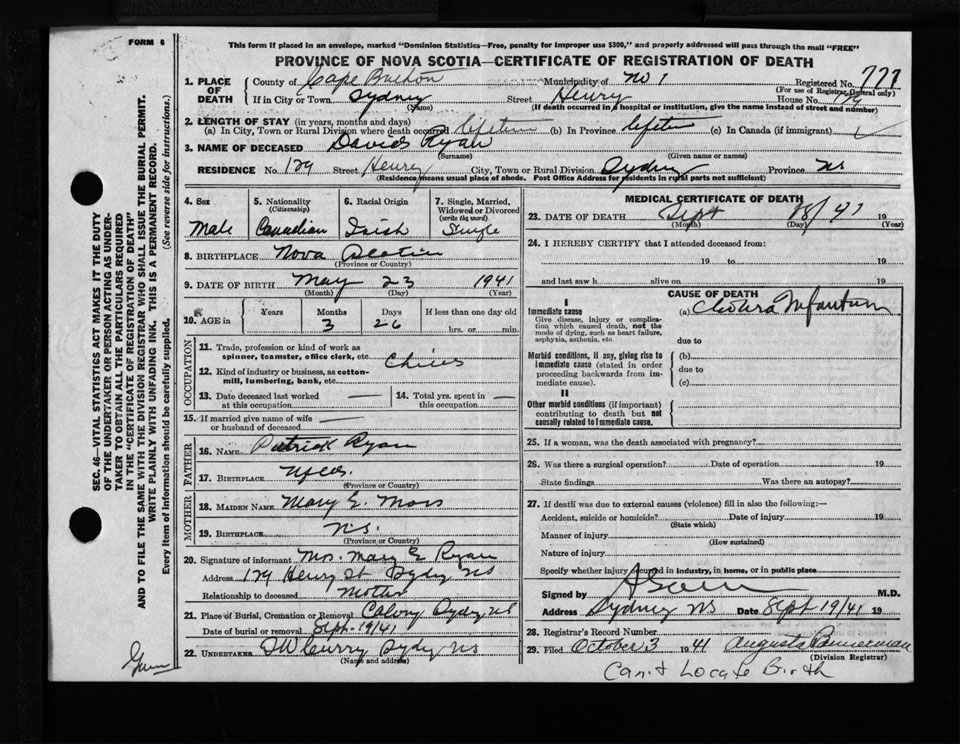 FORM 6
This form if placed in an envelope, marked "Dominion Statistics—Free, penalty for improper use $300," and properly addressed will pass through the mail "FREE"
PROVINCE OF NOVA SCOTIA—CERTIFICATE OF REGISTRATION OF DEATH
1. PLACE OF DEATH
County of Cape Breton Municipality of No 1 Registered No. 777
(For use of Registrar General only)
If in City or Town Sydney Street Henry House No. 129
(Name) (If death occurred in hospital or institution, give the name instead of street and number)
2. LENGTH OF STAY (in years, months and days)
(a) In City, Town or Rural Division where death occurred lifetime (b) In Province lifetime (c) In Canada (if immigrant)
3. NAME OF DECEASED David Ryan
(Surname) (Given name or names)
RESIDENCE No. 129 Street Henry City, Town or Rural Division Sydney Province NS
(Residence means usual place of abode. Post Office Address for residents in rural parts not sufficient)
4. Sex Male
5. Nationality (Citizenship) Canadian
6. Racial Origin Irish
7. Single, Married, Widowed or Divorced (write the word) Single
8. BIRTHPLACE Nova Scotia
(Province or Country)
9. DATE OF BIRTH May 23 1941
(Month) (Day) (Year)
10. AGE in Years Months Days If less than one day old
3 26 hrs. or min.
OCCUPATION
11. Trade, profession or kind of work as spinner, teamster, office clerk, etc.
12. Kind of industry or business, as cotton-mill, lumbering, bank, etc.
13. Date deceased last worked at this occupation
14. Total yrs. spent in this occupation
15. If married give name of wife or husband of deceased
FATHER
16. NAME Patrick Ryan
17. BIRTHPLACE Nfld.
(Province or Country)
MOTHER
18. MAIDEN NAME Mary E.
19. BIRTHPLACE N.S.
(Province or Country)
20. Signature of informant Mrs. Mary E Ryan
Address 129 Henry St Sydney NS
Relationship to deceased Mother
21. Place of Burial, Cremation or Removal Sydney NS
Date of burial or removal Sept-19/41
22. UNDERTAKER Curry Sydney NS
(Name and address)
MEDICAL CERTIFICATE OF DEATH
23. DATE OF DEATH Sept 18/41 19
(Month) (Day) (Year)
24. I HEREBY CERTIFY that I attended deceased from:
19 to 19
and last saw h alive on 19
CAUSE OF DEATH
I
Immediate cause (a) Cholera Infantum
Give disease, injury or complication which caused death, not the mode of dying, such as heart failure, asphyxia, asthenia, etc.
due to
Morbid conditions, if any, giving rise to immediate cause (stated in order proceeding backwards from immediate cause).
(b)
due to
(c)
II
Other morbid conditions (if important) contributing to death but not causally related to immediate cause.
25. If a woman, was the death associated with pregnancy?
26. Was there a surgical operation? Date of operation 19
State findings Was there an autopsy?
27. If death was due to external causes (violence) fill in also the following:—
Accident, suicide or homicide? Date of injury 19
(State which)
Manner of injury
(How sustained)
Nature of injury
Specify whether injury occurred in industry, in home, or in public place
Signed by M.D.
Address Sydney NS Date Sept 19/41 19
28. Registrar's Record Number
29. Filed October 3 1941 Augusta Bannerman
(Division Registrar)
Can't Locate Birth
SEC. 46—VITAL STATISTICS ACT MAKES IT THE DUTY
OF THE UNDERTAKER OR PERSON ACTING AS UNDER-
TAKER TO OBTAIN ALL THE PARTICULARS REQUIRED
IN THE "CERTIFICATE OF REGISTRATION OF DEATH"
AND TO FILE THE SAME WITH THE DIVISION REGISTRAR WHO SHALL ISSUE THE BURIAL PERMIT.
WRITE PLAINLY WITH UNFADING INK. THIS IS A PERMANENT RECORD.
Every item of information should be carefully supplied. (See reverse side for instructions.)